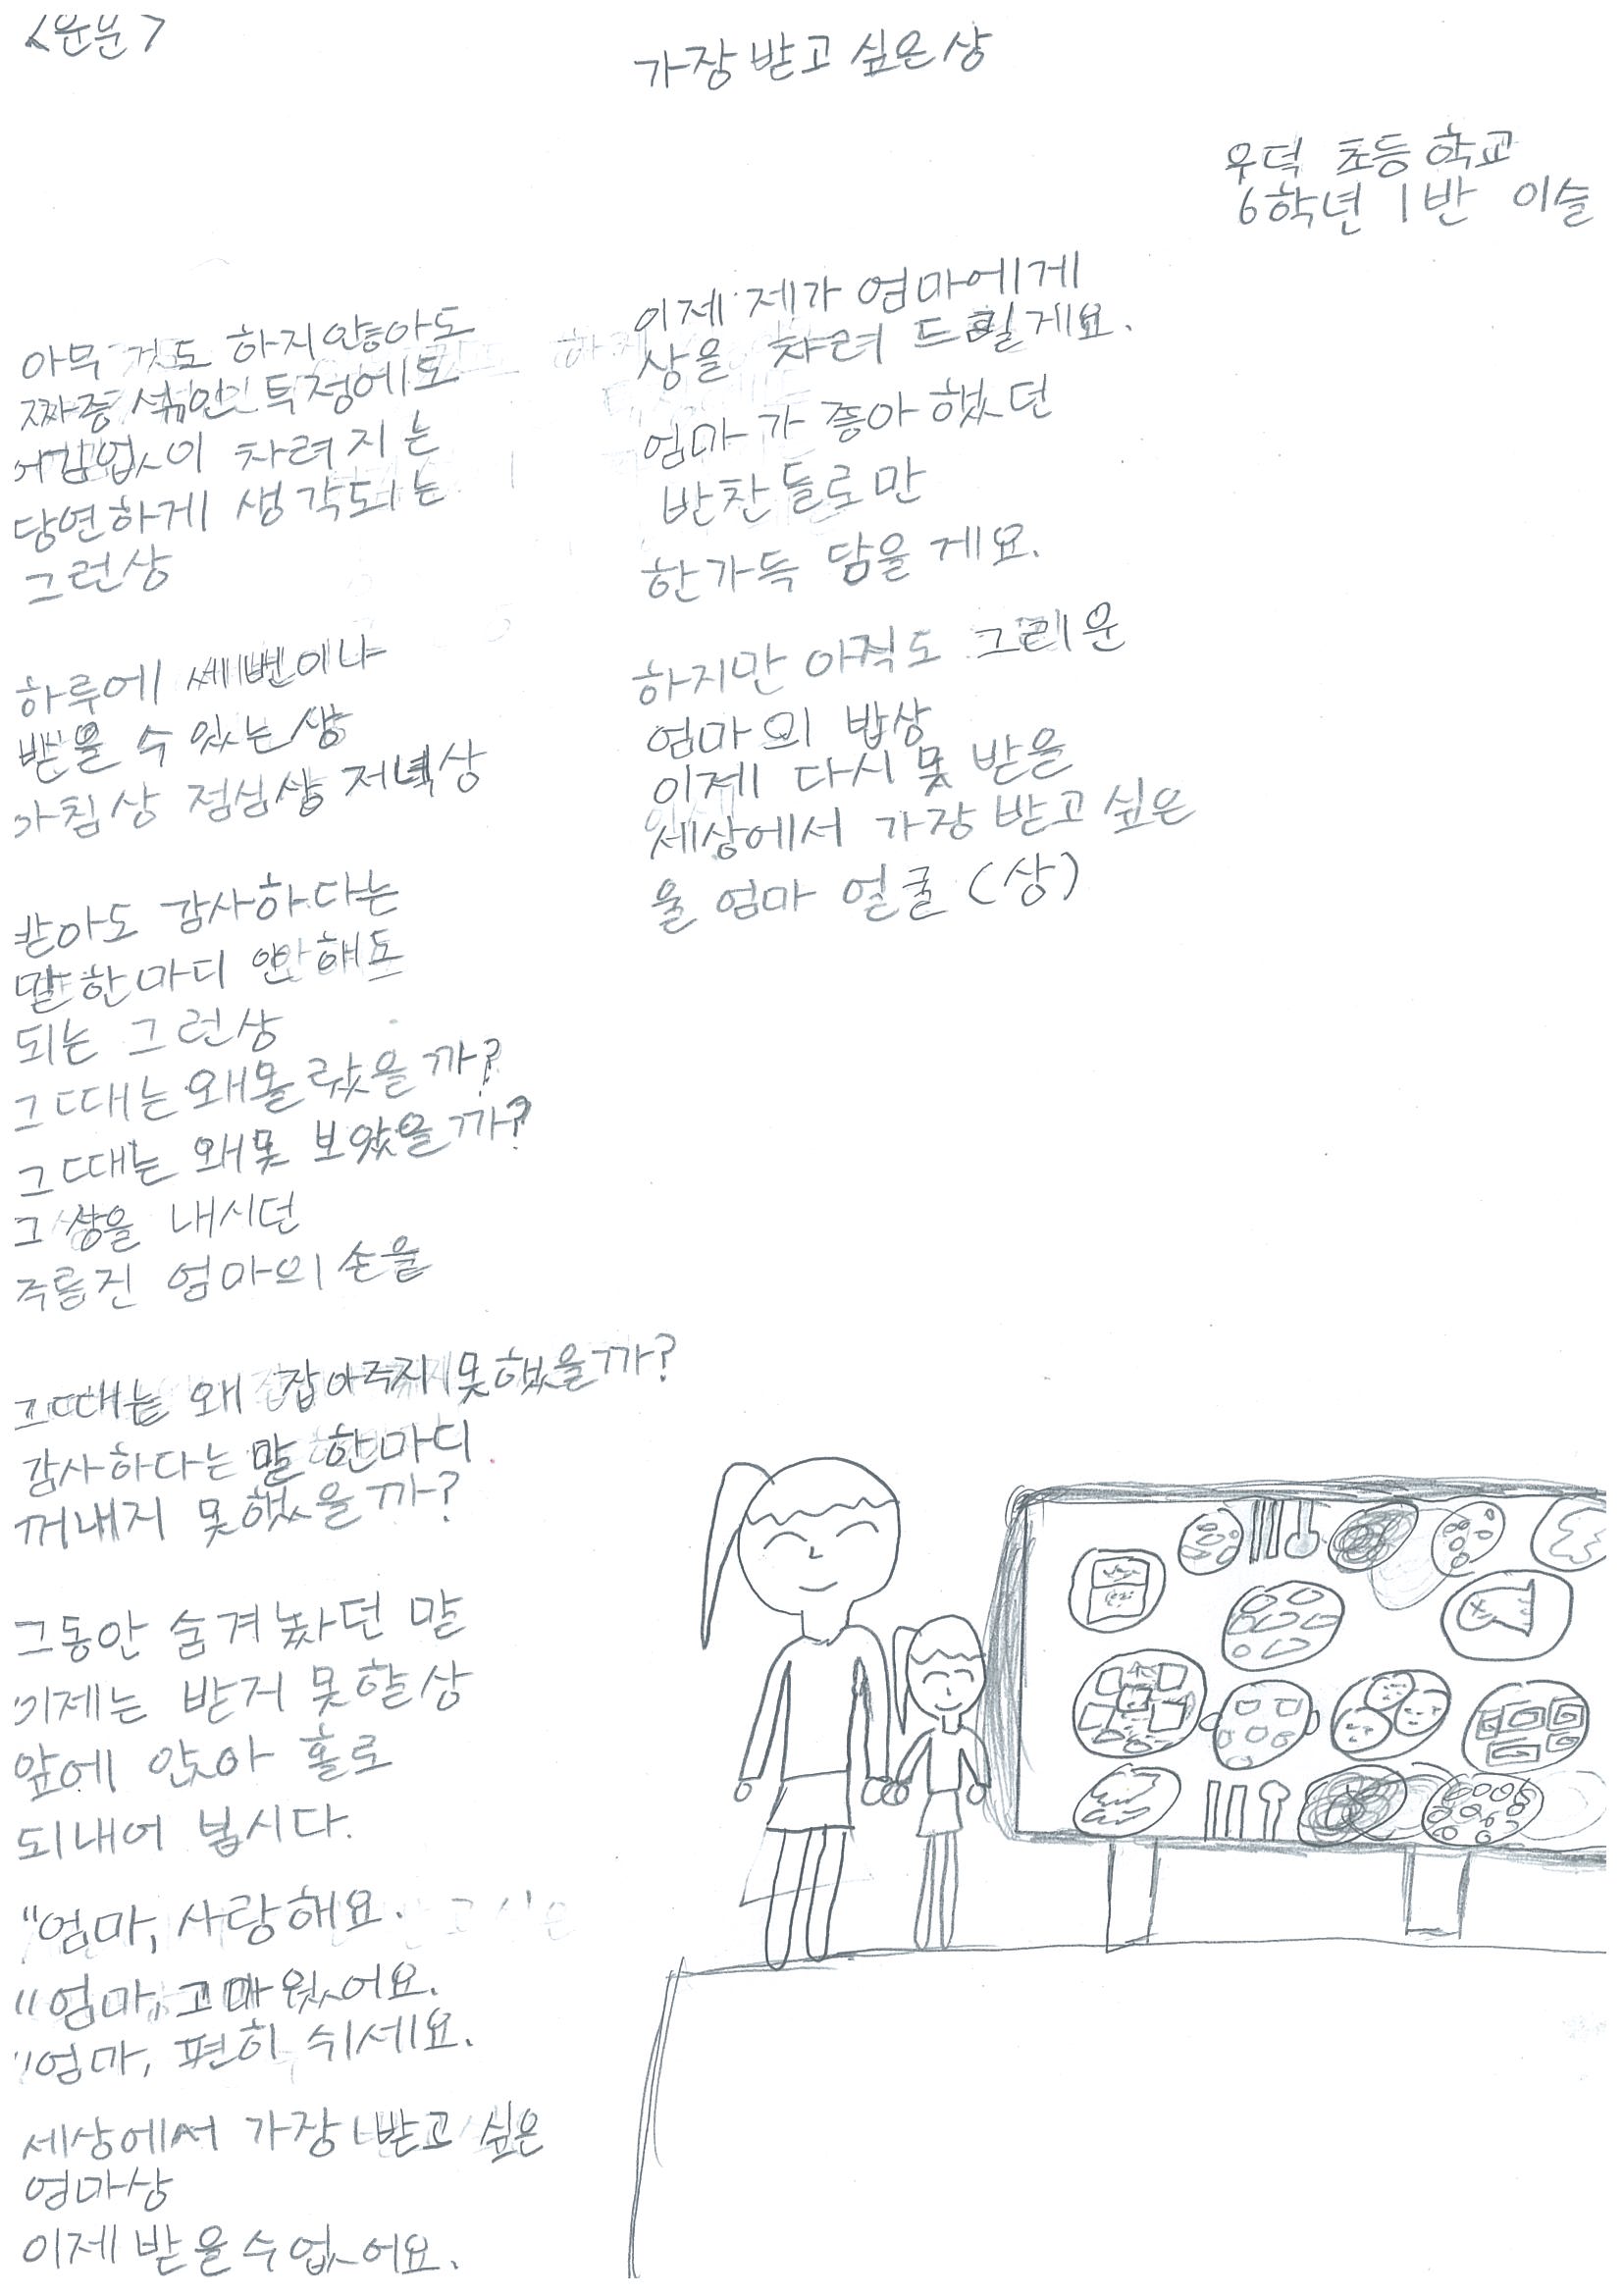 <운문>
가장 받고 싶은 상
우덕 초등 학교
6학년 1반 이슬
아무 것도 하지않아도
짜증 섞인 투정에도
어김없이 차려지는
당연하게 생각되는
그런상
하루에 세번이나
받을 수 있는 상
아침상 점심상 저녁상
받아도 감사하다는
말한마디 안해도
되는 그런상
그때는 왜몰랐을까?
그때는 왜못 보았을까?
그 상을 내시던
주름진 엄마의 손을
그때는 왜 잡아주지 못했을까?
감사하다는 말 한마디
꺼내지 못했을까?
그동안 숨겨놨던 말
이제는 받지 못할상
앞에 앉아 홀로
되내어 봅시다.
"엄마, 사랑해요.
"엄마, 고마웠어요.
"엄마, 편히 쉬세요.
세상에서 가장 받고 싶은
엄마상
이제 받을수없어요.
이제 제가 엄마에게
상을 차려 드릴게요.
엄마가 좋아했던
반찬들로만
한가득 담을게요.
하지만 아직도 그리운
엄마의 밥상
이제 다시 못 받을
세상에서 가장 받고 싶은
울 엄마 얼굴 (상)